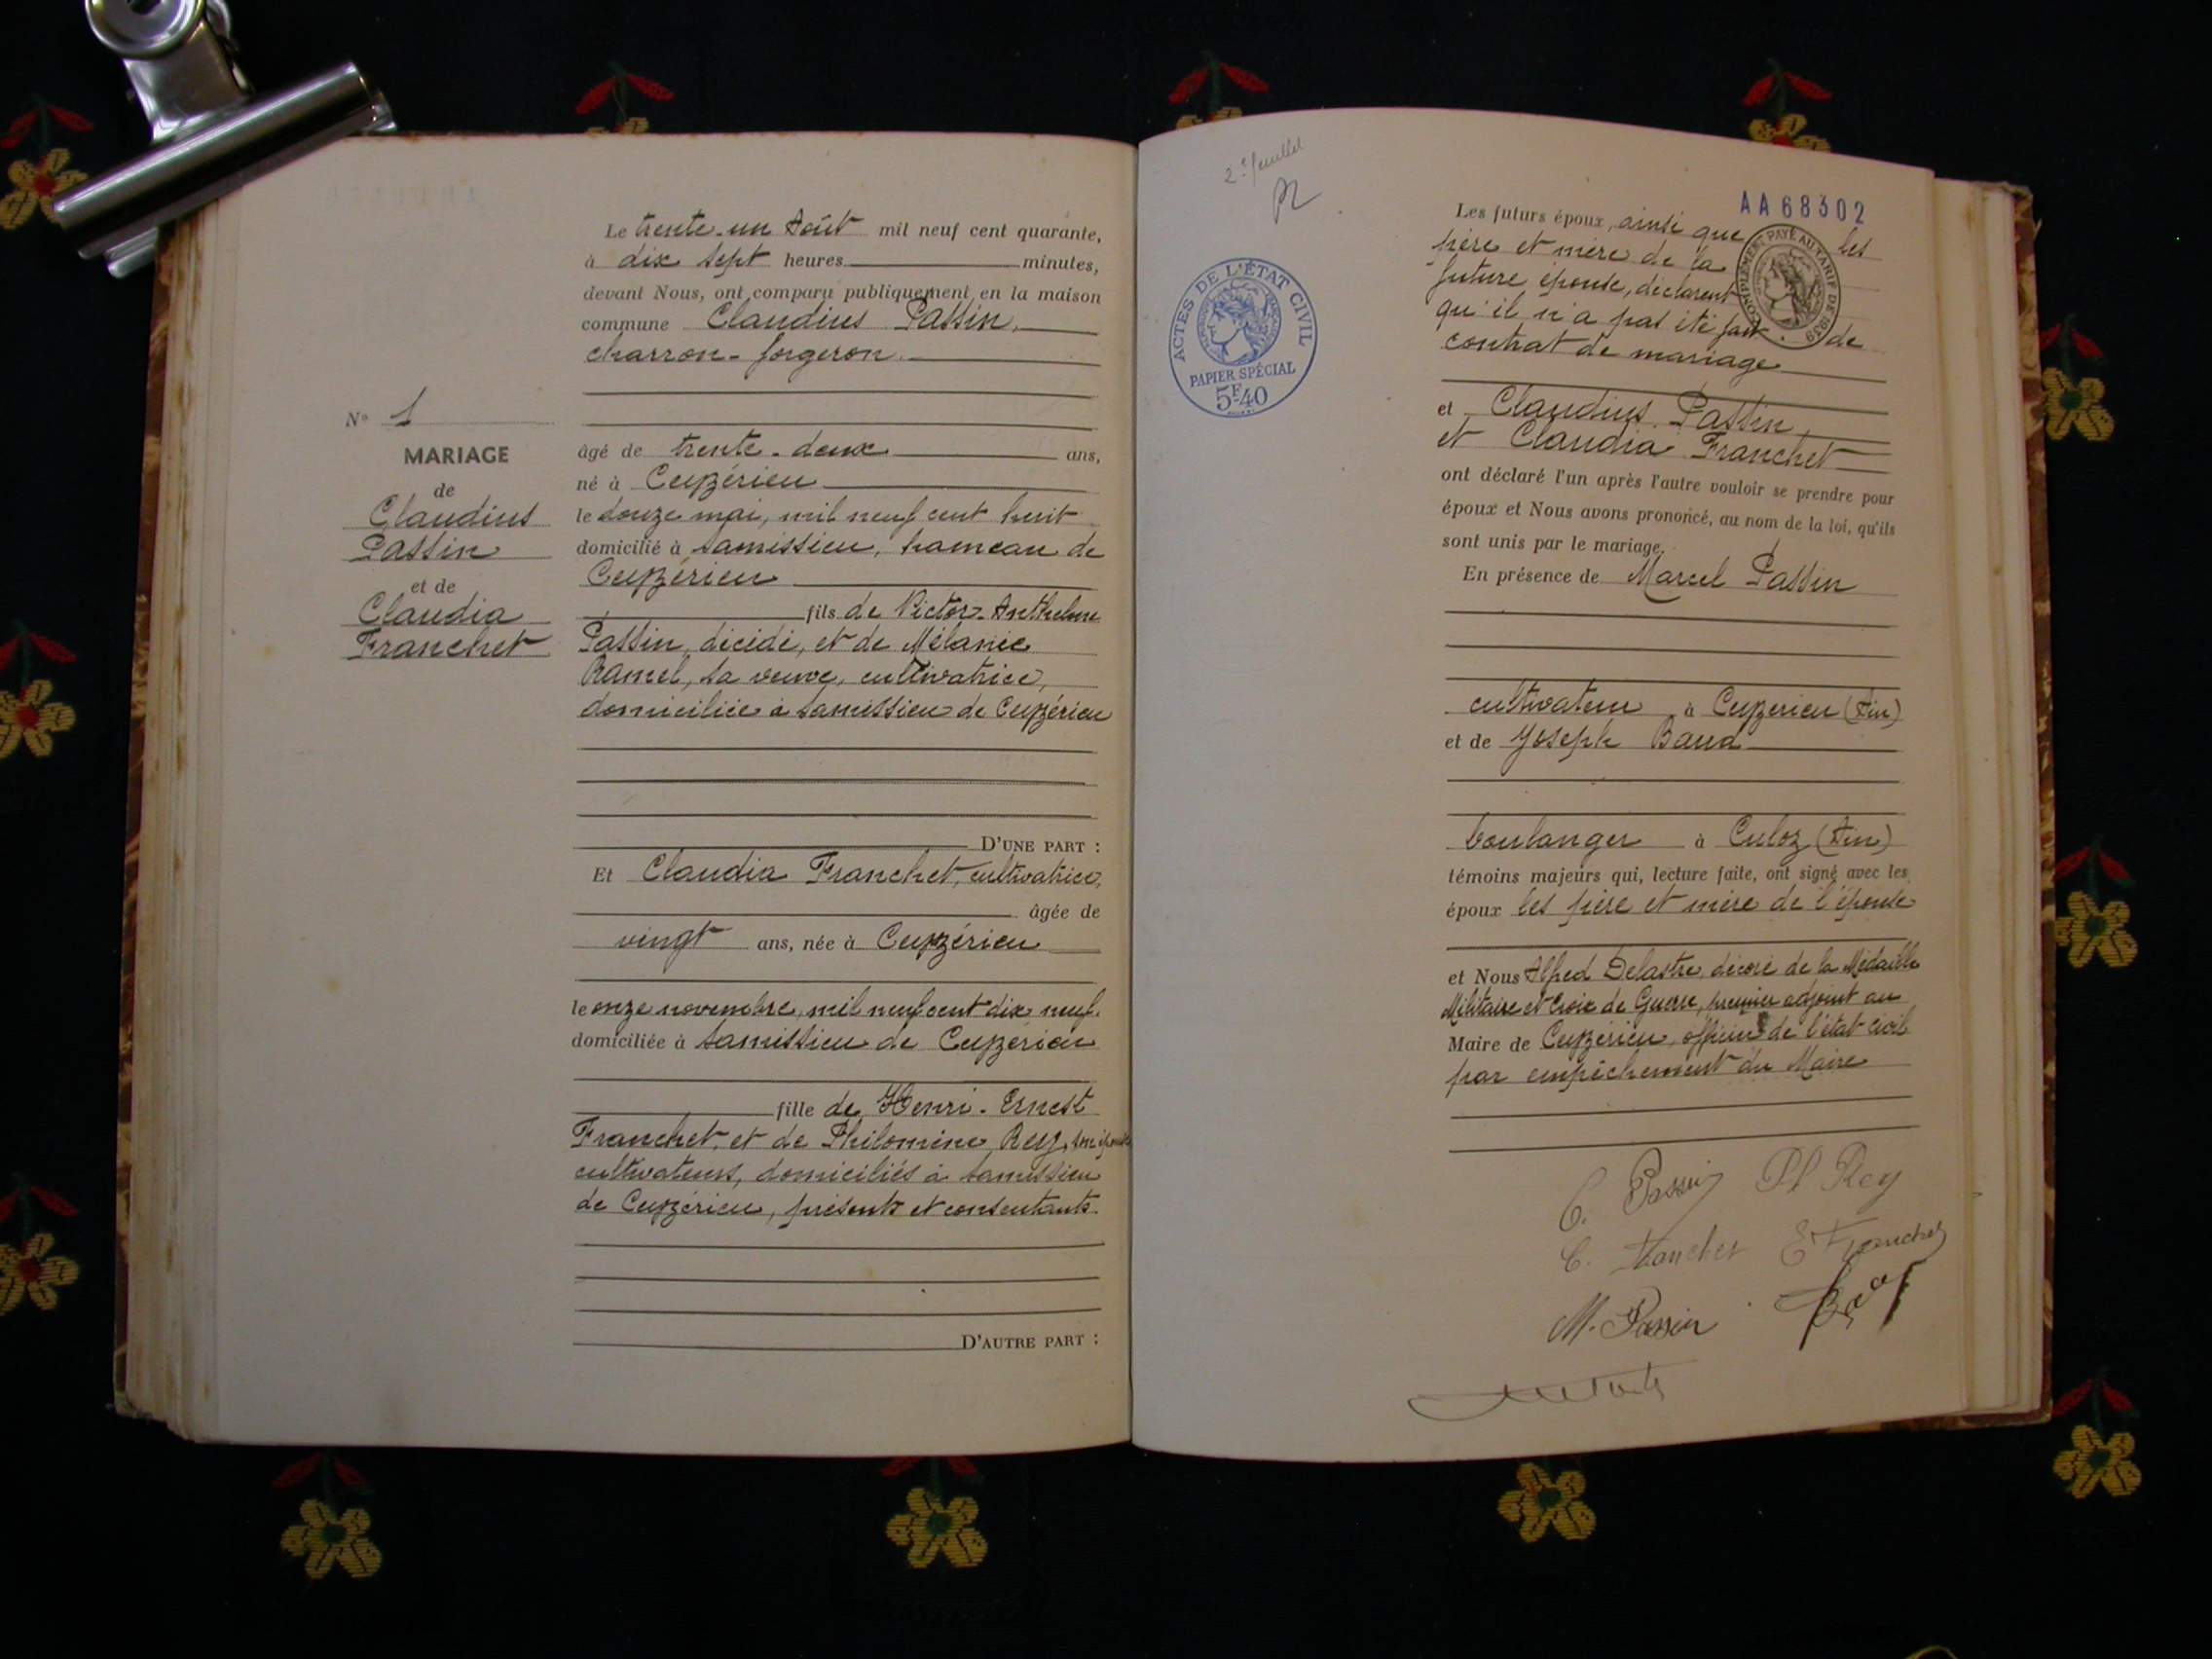 Le trente-un Août mil neuf cent quarante,
à dix sept heures minutes,
devant Nous, ont comparu publiquement en la maison
commune Claudius Passin,
charron-forgeron.
N° 1
MARIAGE
de
Claudius
Passin
et de
Claudia
Franchet
âgé de trente-deux ans,
né à Ceyzérieu
le douze mai, mil neuf cent huit
domicilié à Samissieu, hameau de
Ceyzérieu
fils de Victor-Anthelme
Passin, décédé, et de Mélanie
Ramel, sa veuve, cultivatrice,
domiciliée à Samissieu de Ceyzérieu
D'UNE PART :
Et Claudia Franchet, cultivatrice,
âgée de
vingt ans, née à Ceyzérieu
le onze novembre, mil neuf cent dix neuf.
domiciliée à Samissieu de Ceyzérieu
fille de Henri-Ernest
Franchet, et de Philomène Rey, son épouse
cultivateurs, domiciliés à Samissieu
de Ceyzérieu, présents et consentants.
D'AUTRE PART :
2e feuillet
ACTES DE L'ÉTAT CIVIL
PAPIER SPÉCIAL
5F40
AA68302
COMPLÉMENT PAYÉ AU TARIF DE 1939
Les futurs époux, ainsi que les
père et mère de la
future épouse, déclarent
qu'il n'a pas été fait de
contrat de mariage
et Claudius Passin,
et Claudia Franchet
ont déclaré l'un après l'autre vouloir se prendre pour
époux et Nous avons prononcé, au nom de la loi, qu'ils
sont unis par le mariage.
En présence de Marcel Passin
cultivateur à Ceyzérieu (Ain)
et de Joseph Baud
boulanger à Culoz (Ain)
témoins majeurs qui, lecture faite, ont signé avec les
époux les père et mère de l'épouse
et Nous Alfred Delastre, décoré de la Médaille
Militaire et Croix de Guerre, premier adjoint au
Maire de Ceyzérieu, officier de l'état civil
par empêchement du Maire
C. Passin Ph Rey
C. Franchet E Franchet
M. Passin